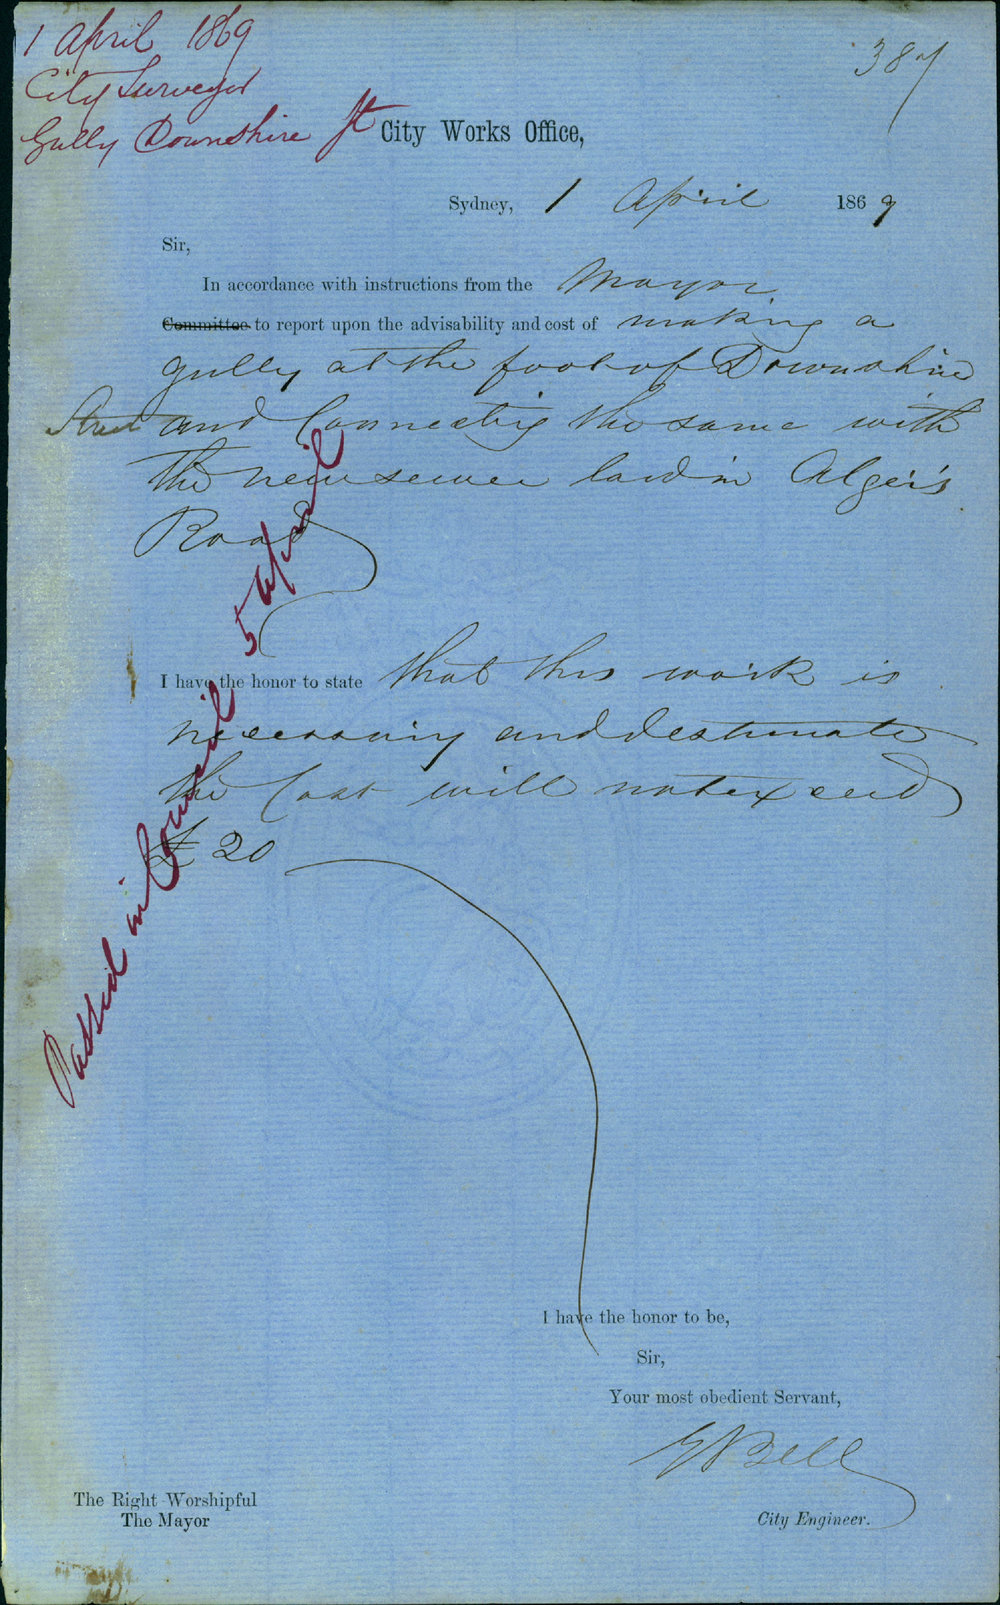 1 April 1869
City Surveyor
Gully Downshire St
387
City Works Office,
Sydney, 1 April 1869
Sir,
In accordance with instructions from the Mayor
Committee to report upon the advisability and cost of making a
gully at the foot of Downshire
Street and Connecting the same with
the new sewer laid in Alger's
Road
I have the honor to state that this work is
necessary and I estimate
the Cost will not exceed
£20
Passed in Council 5 April
I have the honor to be,
Sir,
Your most obedient Servant,
E Bell
City Engineer.
The Right Worshipful
The Mayor